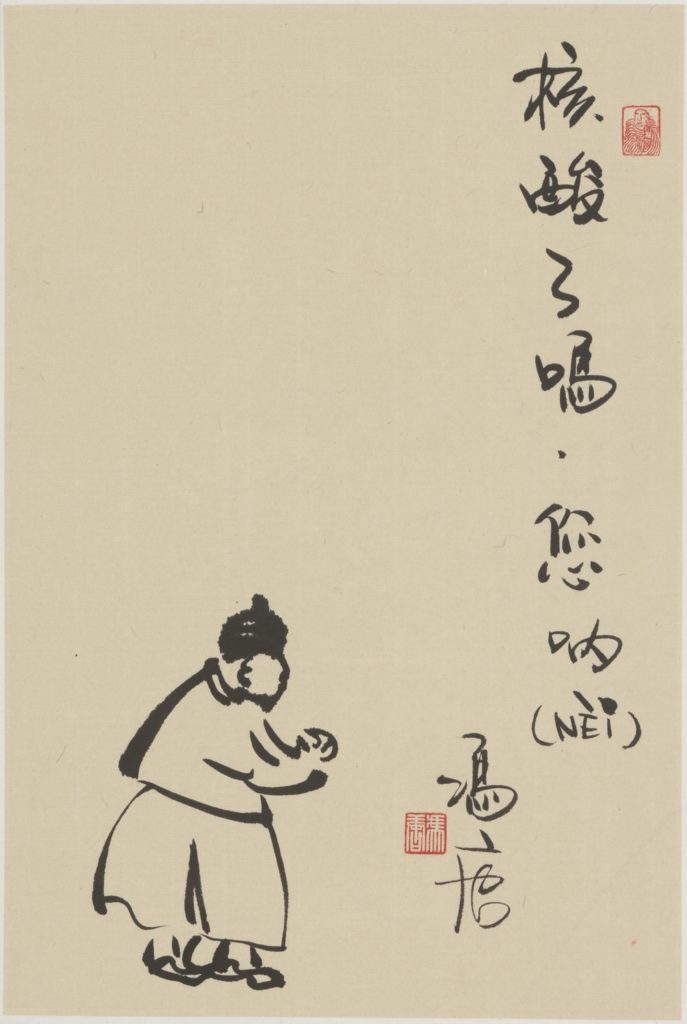 核酸了嗎·您呐(NÈI)
馮唐